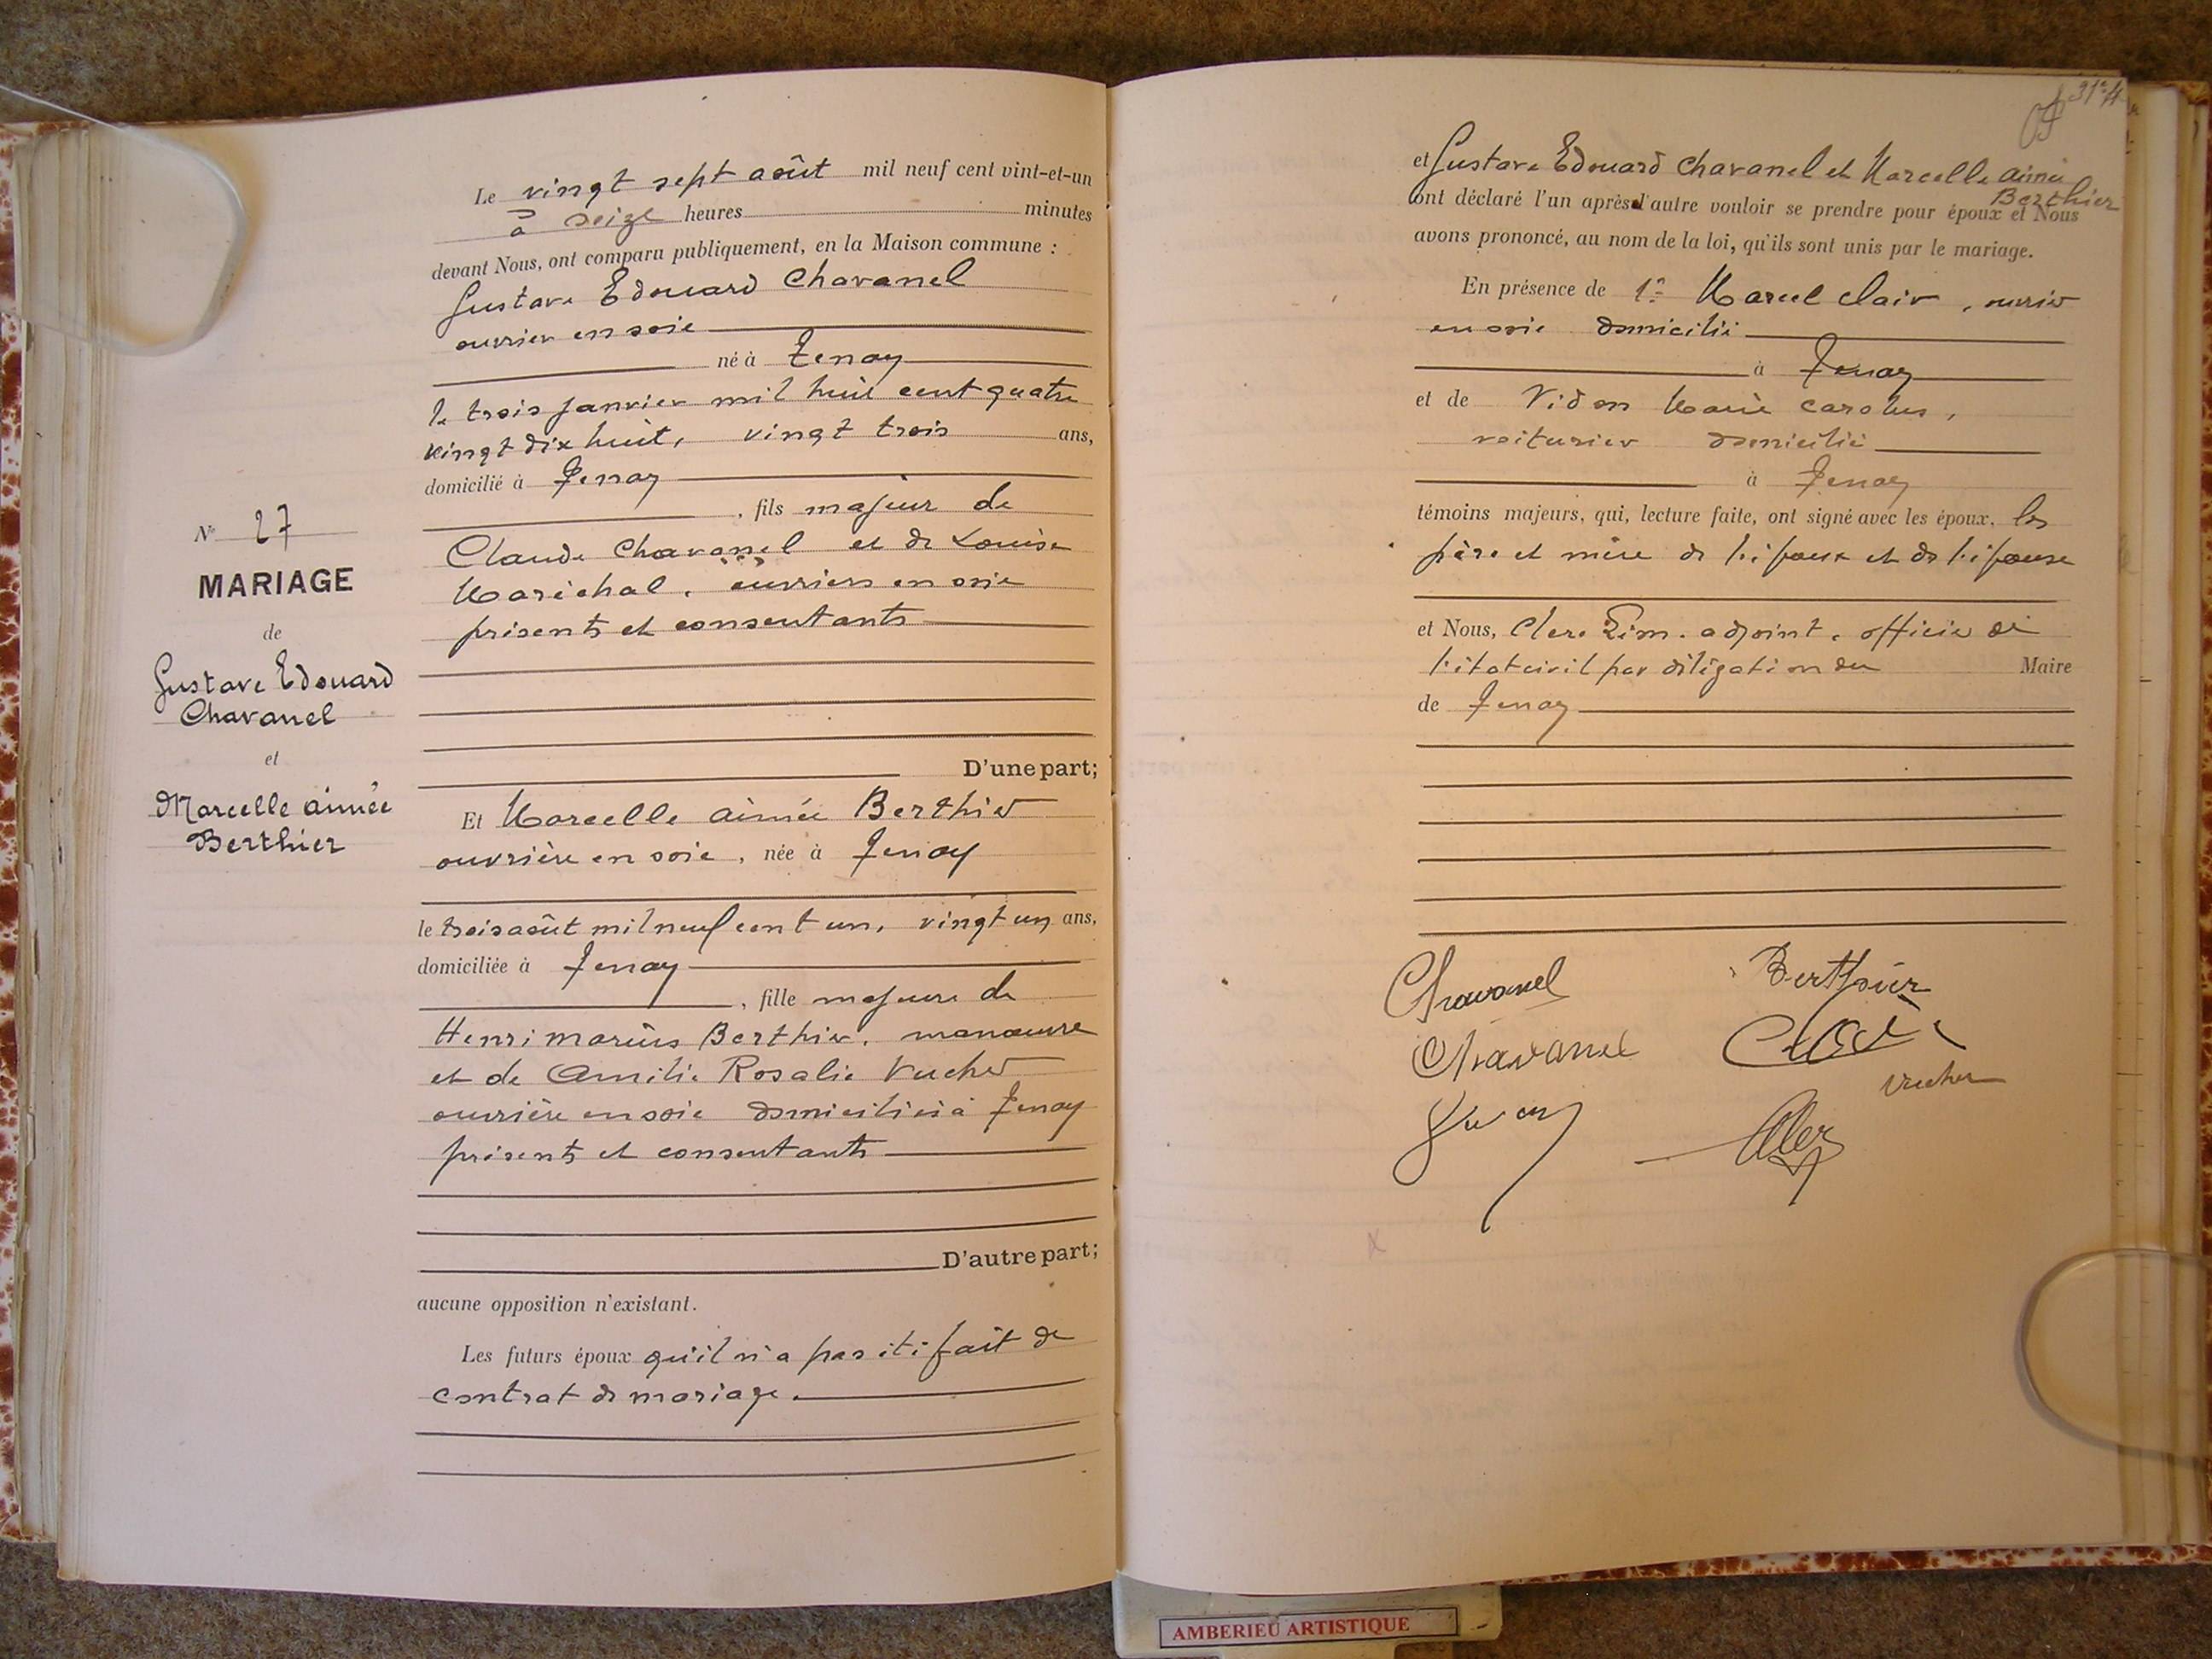 N° 27
MARIAGE
de
Gustave Edouard
Chavanel
et
Marcelle aimée
Berthier
Le vingt sept août mil neuf cent vint-et-un
à seize heures minutes
devant Nous, ont comparu publiquement, en la Maison commune :
Gustave Edouard Chavanel
ouvrier en soie
né à Tenay
le trois janvier mil huit cent quatre
vingt dix huit, vingt trois ans,
domicilié à Tenay
, fils majeur de
Claude Chavanel et de Louise
Maréchal, ouvriers en soie
présents et consentants
D'une part;
Et Marcelle aimée Berthier
ouvrière en soie, née à Tenay
le trois août mil neuf cent un, vingt un ans,
domiciliée à Tenay
, fille majeure de
Henri marius Berthier, manœuvre
et de Amélie Rosalie Vucher
ouvrière en soie domiciliés à Tenay
présents et consentants
D'autre part;
aucune opposition n'existant.
Les futurs époux qu'il n'a pas été fait de
contrat de mariage.
31 et
et Gustave Edouard Chavanel et Marcelle aimée
Berthier
ont déclaré l'un après l'autre vouloir se prendre pour époux et Nous
avons prononcé, au nom de la loi, qu'ils sont unis par le mariage.
En présence de 1° Marcel Clair, ouvrier
en soie domicilié
à Tenay
et de Vidon Marie
voiturier domicilié
à Tenay
témoins majeurs, qui, lecture faite, ont signé avec les époux, les
père et mère de l'époux et de l'épouse
et Nous, Clerc adjoint, officier de
l'état civil par délégation du Maire
de Tenay
Chavanel Berthier
Chavanel Clair
Vucher
Clerc
AMBERIEU ARTISTIQUE